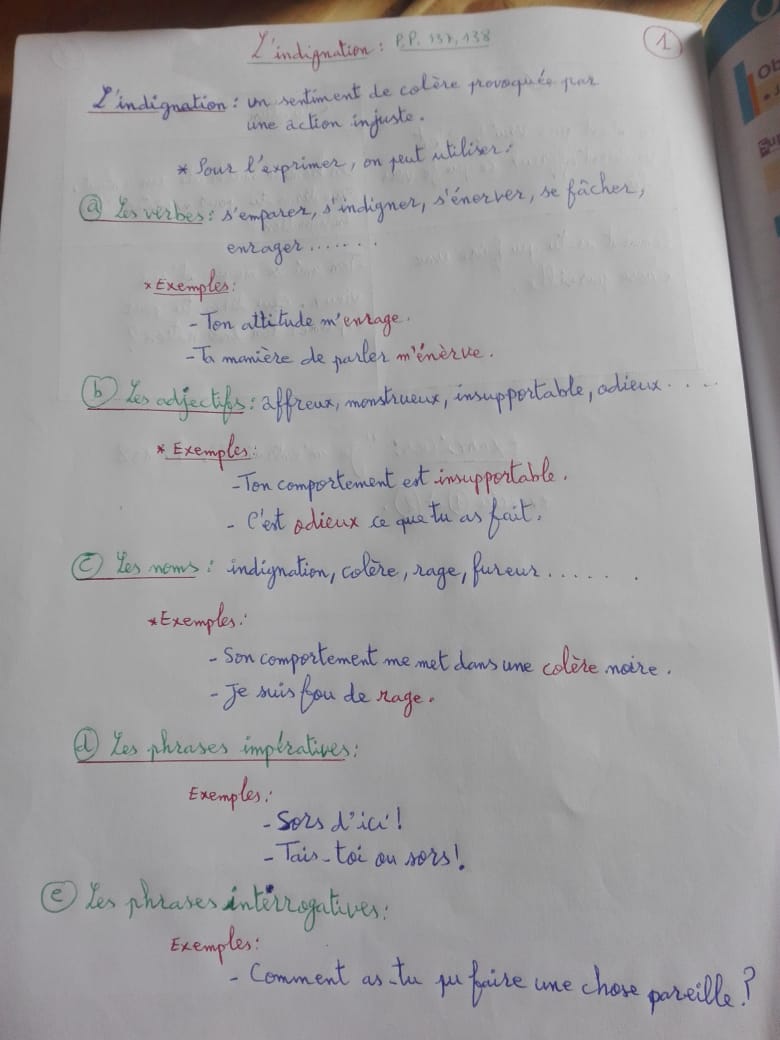 L'indignation : P.P. 137, 138
1
L'indignation : un sentiment de colère provoquée par
une action injuste.
* Pour l'exprimer, on peut utiliser :
a Les verbes : s'emparer, s'indigner, s'énerver, se fâcher,
enrager.......
* Exemples :
- Ton attitude m'enrage.
- Ta manière de parler m'énèrve.
b Les adjectifs : affreux, monstrueux, insupportable, odieux....
* Exemples :
- Ton comportement est insupportable.
- C'est odieux ce que tu as fait.
c Les noms : indignation, colère, rage, fureur.......
* Exemples :
- Son comportement me met dans une colère noire.
- Je suis fou de rage.
d Les phrases impératives :
Exemples :
- Sors d'ici !
- Tais-toi ou sors !
e Les phrases interrogatives :
Exemples :
- Comment as-tu pu faire une chose pareille ?